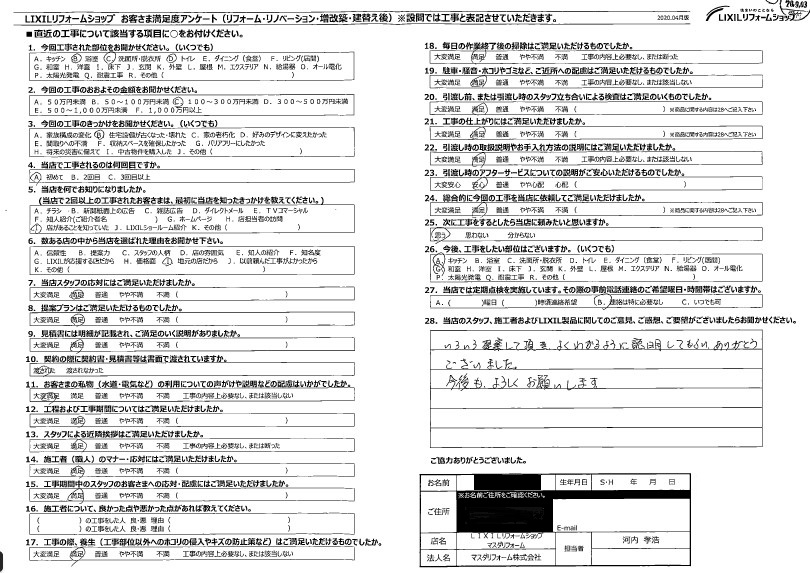 LIXILリフォームショップ お客さま満足度アンケート(リフォーム・リノベーション・増改築・建替え後)※設問では工事と表記させていただきます。
2020.04月版
LIXILリフォームショップ
■直近の工事について該当する項目に○をお付けください。
1．今回工事された部位をお聞かせください。(いくつでも)
A．キッチン B．浴室 C．洗面所・脱衣所 D．トイレ E．ダイニング(食堂) F．リビング(居間)
G．和室 H．洋室 I．床下 J．玄関 K．外壁 L．屋根 M．エクステリア N．給湯器 O．オール電化
P．太陽光発電 Q．耐震工事 R．その他( )
2．今回の工事のおおよその金額をお聞かせください。
A．50万円未満 B．50～100万円未満 C．100～300万円未満 D．300～500万円未満
E．500～1,000万円未満 F．1,000万円以上
3．今回の工事のきっかけをお聞かせください。(いくつでも)
A．家族構成の変化 B．住宅設備が古くなった・壊れた C．家の老朽化 D．好みのデザインに変えたかった
E．間取りへの不満 F．収納スペースを確保したかった G．バリアフリーにしたかった
H．将来の災害に備えて I．中古物件を購入した J．その他( )
4．当店で工事されるのは何回目ですか。
A．初めて B．2回目 C．3回目以上
5．当店を何でお知りになりましたか。
(当店で2回以上の工事されたお客さまは、最初に当店を知ったきっかけを教えてください。)
A．チラシ B．新聞紙面上の広告 C．雑誌広告 D．ダイレクトメール E．TVコマーシャル
F．知人紹介(ご紹介者名 ) G．ホームページ H．店担当者の訪問
I．店があることを知っていた J．LIXILショールーム紹介 K．その他( )
6．数ある店の中から当店を選ばれた理由をお聞かせ下さい。
A．信頼性 B．提案力 C．スタッフの人柄 D．店の雰囲気 E．知人の紹介 F．知名度
G．LIXILが応援する店だから H．価格面 I．地元の店だから J．以前頼んだ工事がよかったから
K．その他( )
7．当店スタッフの応対にはご満足いただけましたか。
大変満足 満足 普通 やや不満 不満( )
8．提案プランはご満足いただけるものでしたか。
大変満足 満足 普通 やや不満 不満( )
9．見積書には明細が記載され、ご満足のいく説明がありましたか。
大変満足 満足 普通 やや不満 不満( )
10．契約の際に契約書・見積書等は書面で渡されていますか。
渡された 渡されなかった
11．お客さまの私物(水道・電気など)の利用についての声がけや説明などの配慮はいかがでしたか。
大変満足 満足 普通 やや不満 不満 工事の内容上必要なし、または該当しない
12．工程および工事期間についてはご満足いただけましたか。
大変満足 満足 普通 やや不満 不満( )
13．スタッフによる近隣挨拶はご満足いただけましたか。
大変満足 満足 普通 やや不満 不満 工事の内容上必要なし、または断った
14．施工者(職人)のマナー・応対にはご満足いただけましたか。
大変満足 満足 普通 やや不満 不満( )
15．工事期間中のスタッフのお客さまへの応対・配慮にはご満足いただけましたか。
大変満足 満足 普通 やや不満 不満( )
16．施工者について、良かった点や悪かった点があれば教えてください。
( )の工事をした人 良・悪 理由( )
( )の工事をした人 良・悪 理由( )
17．工事の際、養生(工事部位以外へのホコリの侵入やキズの防止策など)はご満足いただけるものでしたか。
大変満足 満足 普通 やや不満 不満 工事の内容上必要なし、または該当しない
18．毎日の作業終了後の掃除はご満足いただけるものでしたか。
大変満足 満足 普通 やや不満 不満 工事の内容上必要なし、または断った
19．駐車・騒音・ホコリやゴミなど、ご近所への配慮はご満足いただけるものでしたか。
大変満足 満足 普通 やや不満 不満 工事の内容上必要なし、または該当しない
20．引渡し前、または引渡し時のスタッフ立ち合いによる検査はご満足のいくものでしたか。
大変満足 満足 普通 やや不満 不満( )※商品に関する内容は28へご記入下さい
21．工事の仕上がりにはご満足いただけましたか。
大変満足 満足 普通 やや不満 不満( )※商品に関する内容は28へご記入下さい
22．引渡し時の取扱説明やお手入れ方法の説明にはご満足いただけましたか。
大変満足 満足 普通 やや不満 不満 工事の内容上必要なし、または該当しない
23．引渡し時のアフターサービスについての説明がご安心いただけるものでしたか。
大変安心 安心 普通 やや心配 心配( )
24．総合的に今回の工事を当店に依頼してご満足いただけましたか。
大変満足 満足 普通 やや不満 不満( )※商品に関する内容は28へご記入下さい
25．次に工事をするとしたら当店に頼みたいと思いますか。
思う 思わない 分からない
26．今後、工事をしたい部位はございますか。(いくつでも)
A．キッチン B．浴室 C．洗面所・脱衣所 D．トイレ E．ダイニング(食堂) F．リビング(居間)
G．和室 H．洋室 I．床下 J．玄関 K．外壁 L．屋根 M．エクステリア N．給湯器 O．オール電化
P．太陽光発電 Q．耐震工事 R．その他( )
27．当店では定期点検を実施しています。その際の事前電話連絡のご希望曜日・時間帯はございますか。
A．( )曜日( )時頃連絡希望 B．連絡は特に必要なし C．いつでも可
28．当店のスタッフ、施工者およびLIXIL製品に関してのご意見、ご感想、ご要望がございましたらお聞かせください。
いろいろ提案して頂き、よくわかるように説明してもらい、ありがとう
ございました。
今後も、よろしくお願いします
ご協力ありがとうございました。
お名前 生年月日 S・H 年 月 日
※お名前ご住所をご確認ください。
ご住所
E-mail
店名 LIXILリフォームショップ マスダリフォーム 担当者 河内 孝浩
法人名 マスダリフォーム株式会社